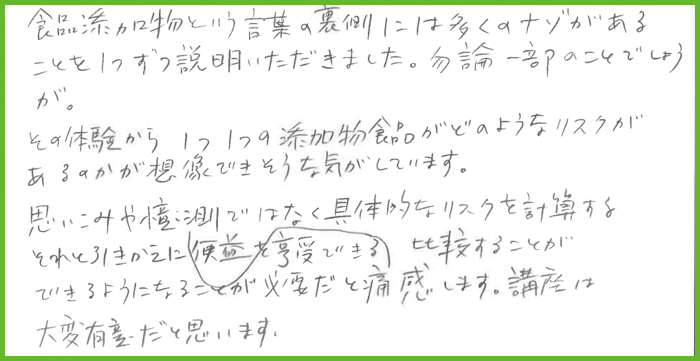 食品添加物という言葉の裏側には多くのナゾがある
ことを1つずつ説明いただきました。勿論一部のことでしょう
が。
その体験から 1つ1つの添加物食品がどのようなリスクが
あるのかが想像できそうな気がしています。
思いこみや憶測ではなく具体的なリスクを計算する
それと引きかえに便益を享受できる 比較することが
できるようになることが必要だと痛感します。講座は
大変有意だと思います.